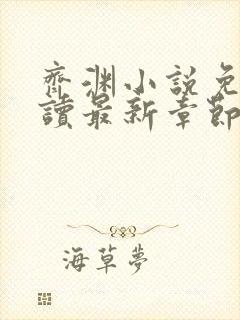 齊淵小說免
讀最新章節
海草夢